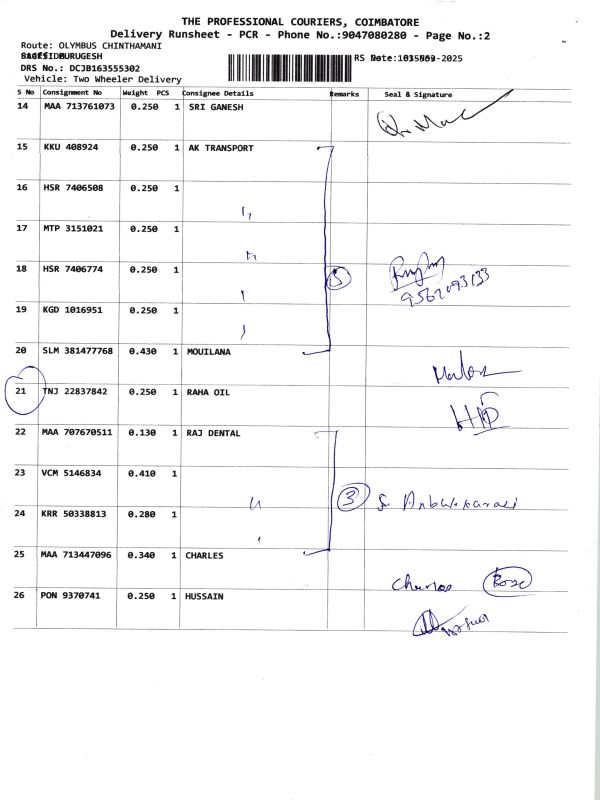 THE PROFESSIONAL COURIERS, COIMBATORE
Delivery Runsheet - PCR - Phone No.:9047080280 - Page No.:2
Route: OLYMBUS CHINTHAMANI
DRS No.: DCJB163555302
Vehicle: Two Wheeler Delivery
S No Consignment No Weight PCS Consignee Details Remarks Seal & Signature
14 MAA 713761073 0.250 1 SRI GANESH
15 KKU 408924 0.250 1 AK TRANSPORT
16 HSR 7406508 0.250 1
17 MTP 3151021 0.250 1
18 HSR 7406774 0.250 1
5
9562093133
19 KGD 1016951 0.250 1
20 SLM 381477768 0.430 1 MOUILANA
21 TNJ 22837842 0.250 1 RAHA OIL
22 MAA 707670511 0.130 1 RAJ DENTAL
23 VCM 5146834 0.410 1
3
24 KRR 50338813 0.280 1
25 MAA 713447096 0.340 1 CHARLES
Charles
26 PON 9370741 0.250 1 HUSSAIN